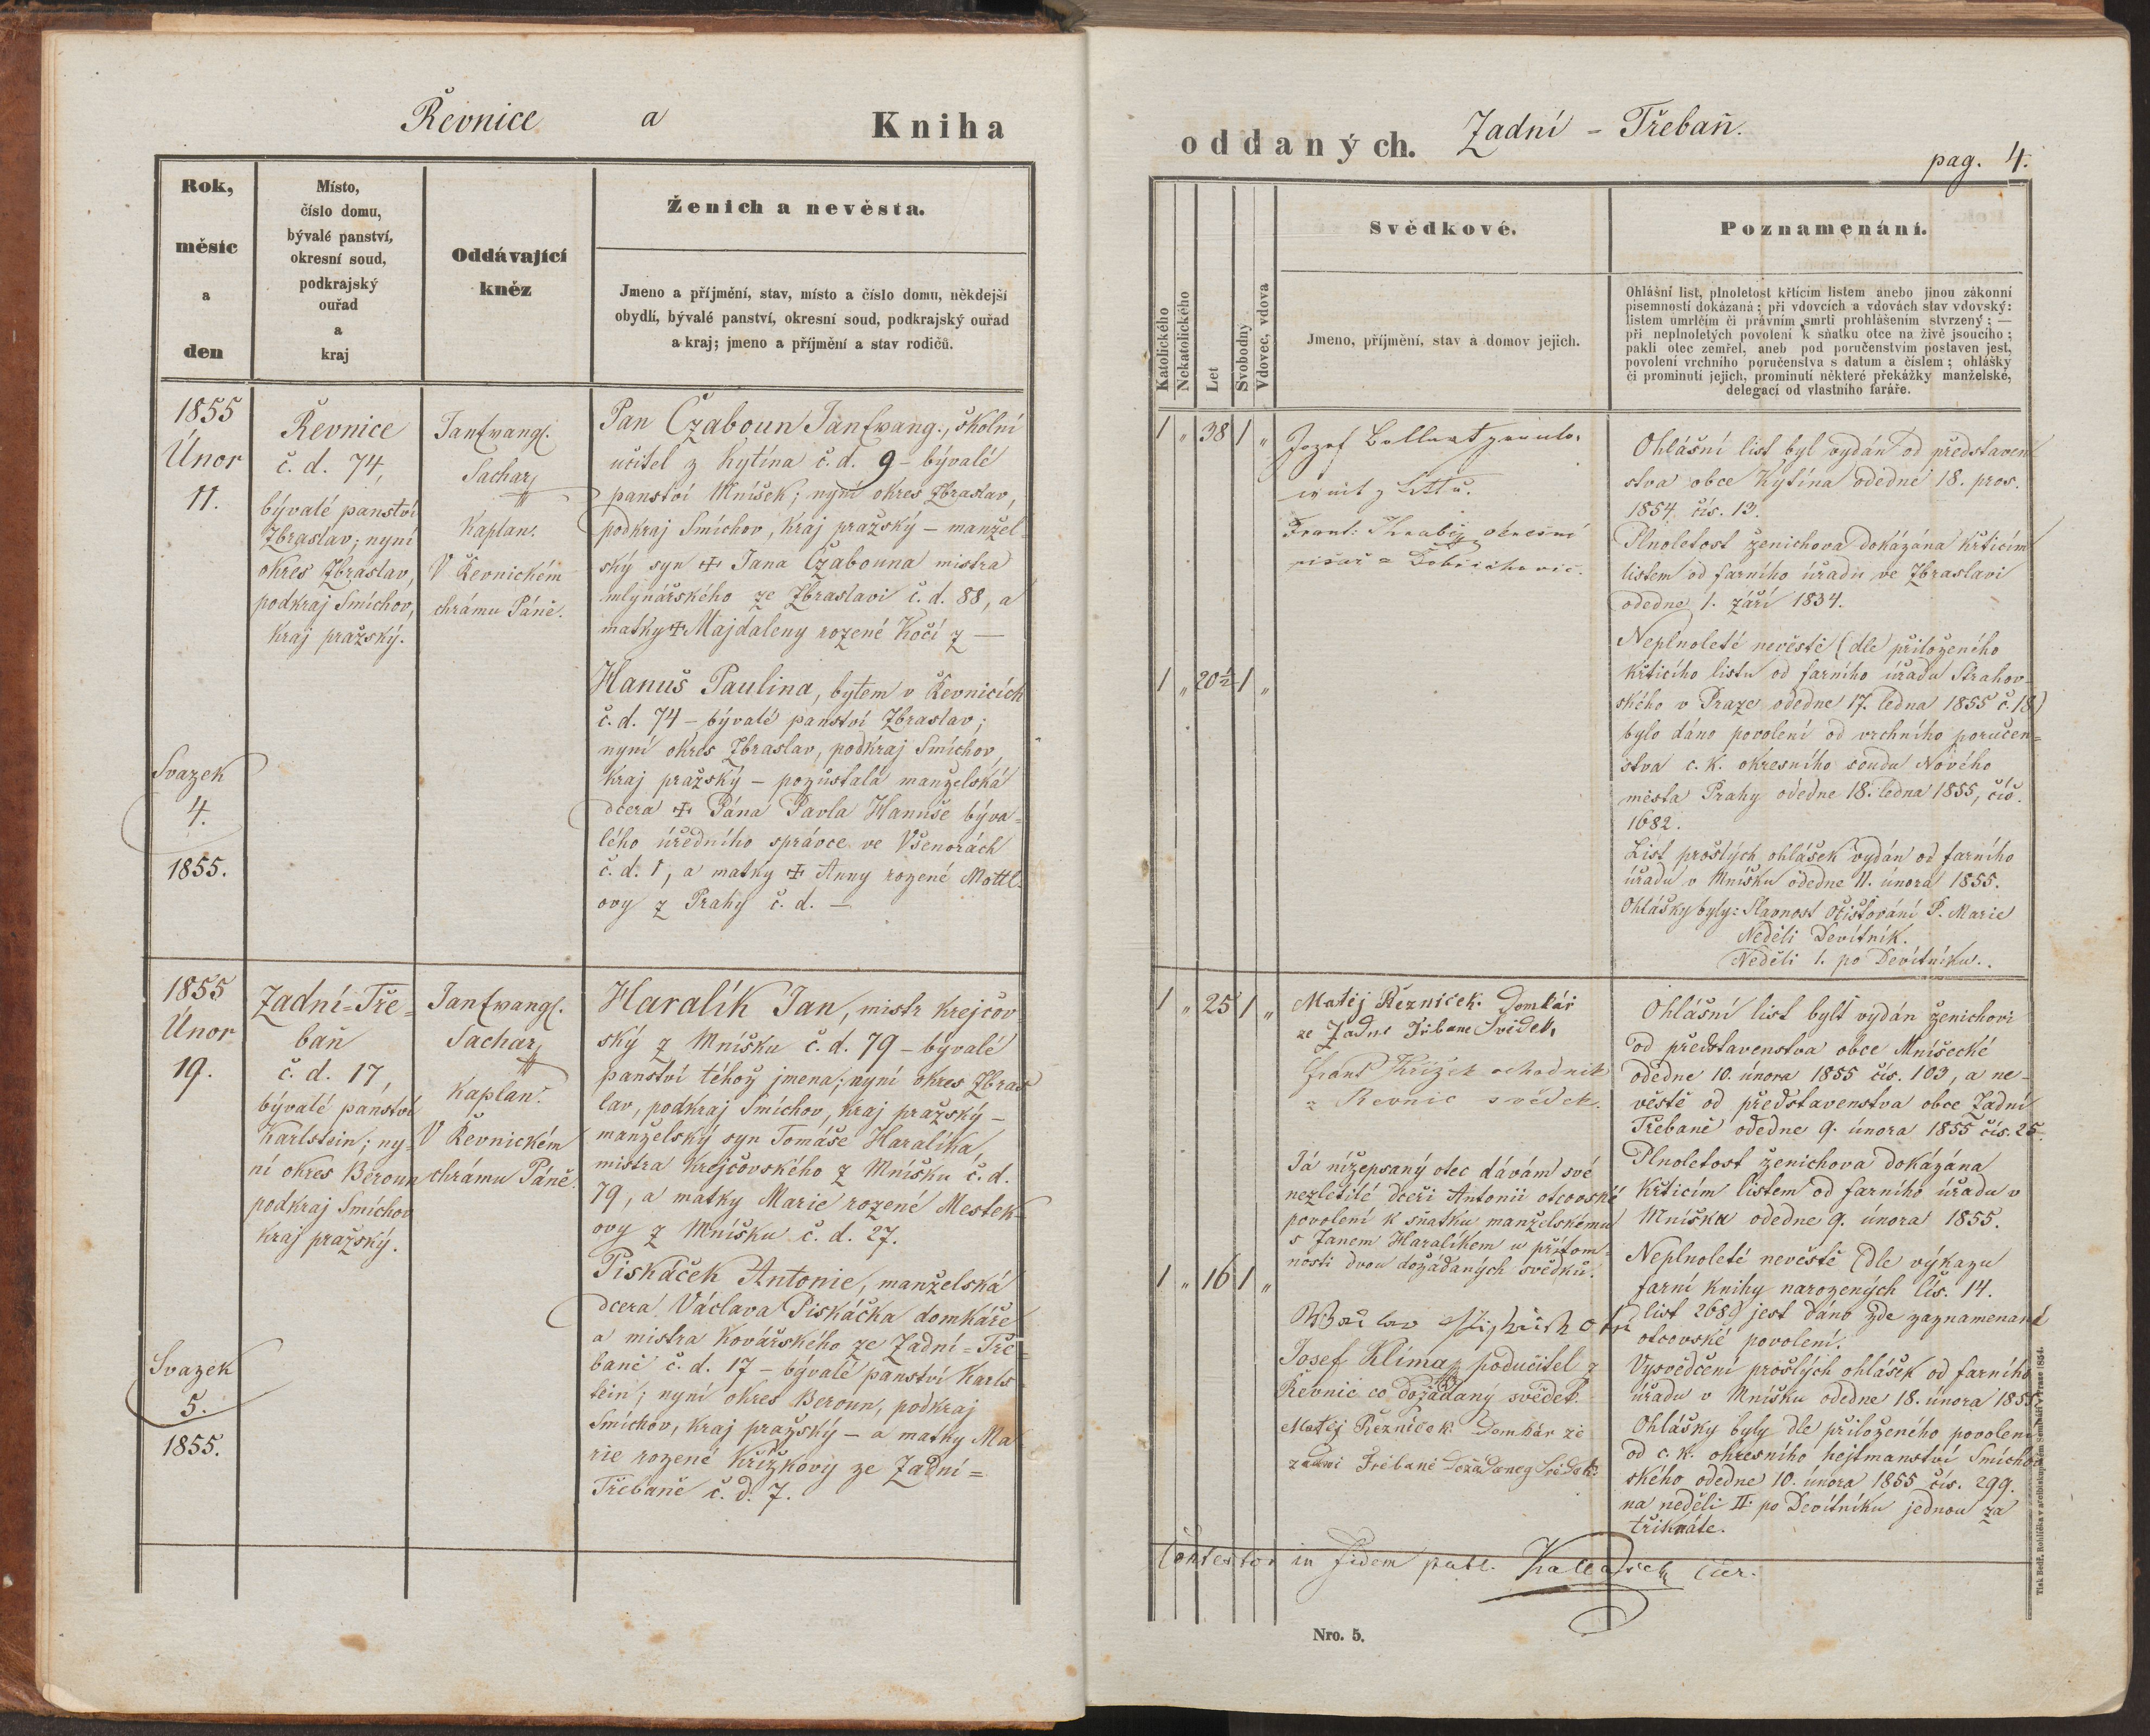 Řevnice a Kniha
Rok,
měsíc
a
den
Místo,
číslo domu,
bývalé panství,
okresní soud,
podkrajský
ouřad
a
kraj
Oddávající
kněz
Ženich a nevěsta.
Jmeno a příjmění, stav, místo a číslo domu, někdejší
obydlí, bývalé panství, okresní soud, podkrajský ouřad
a kraj; jmeno a příjmění a stav rodičů.
1855
Únor
11.
Svazek
4.
1855.
Řevnice
č. d. 74,
bývalé panství
Zbraslav; nyní
okres Zbraslav,
podkraj Smíchov,
kraj pražský.
Jan Evangl.
Sachar
Kaplan.
V Řevnickém
chrámu Páně.
Pan Čzaboun Jan Evang., školní
učitel z Kytína č. d. 9 – bývalé
panství Mníšek; nyní okres Zbraslav,
podkraj Smíchov, kraj pražský – manžel-
ský syn ✠ Jana Čzabouna mistra
mlynářského ze Zbraslavi č. d. 88, a
matky ✠ Majdaleny rozené Kočí z —
Hanuš Paulina, bytem v Řevnicích
č. d. 74 – bývalé panství Zbraslav;
nyní okres Zbraslav, podkraj Smíchov,
kraj pražský – pozůstalá manželská
dcera ✠ Pána Pavla Hanuše býva=
lého úředního správce ve Všenorách
č. d. 1, a matky ✠ Anny rozené Mottl-
ovy z Prahy č. d. —
1855
Únor
19.
Svazek
5.
1855.
Zadní=Tře=
baň
č. d. 17,
bývalé panství
Karlstein; ny-
ní okres Beroun
podkraj Smíchov
kraj pražský.
Jan Evangl.
Sachar
Kaplan.
V Řevnickém
chrámu Páně.
Haralík Jan, mistr krejčov
ský z Mníšku č. d. 79 – bývalé
panství téhož jmena; nyní okres Zbras
lav, podkraj Smíchov, kraj pražský –
manželský syn Tomáše Haralíka,
mistra krejčovského z Mníšku č. d.
79, a matky Marie rozené Mestek-
ovy z Mníšku č. d. 27.
Piskáček Antonie, manželská
dcera Václava Piskáčka domkáře
a mistra kovářského ze Zadní=Tře=
baně č. d. 17 – bývalé panství Karls
tein; nyní okres Beroun, podkraj
Smíchov, kraj pražský – a matky Ma
rie rozené Křížkovy ze Zadní=
Třebaně č. d. 7.
oddaných. Zadní – Třebaň.
pag. 4.
Katolického
Nekatolického
Let
Svobodný
Vdovec, vdova
Svědkové.
Jmeno, příjmění, stav a domov jejich.
Poznamenání.
Ohlášní list, plnoletost křtícím listem anebo jinou zákonní
písemností dokázaná; při vdovcích a vdovách stav vdovský:
listem umrlčím či právním smrti prohlášením stvrzený; —
při neplnoletých povolení k sňatku otce na živě jsoucího;
pakli otec zemřel, aneb pod poručenstvím postaven jest,
povolení vrchního poručenstva s datum a číslem; ohlášky
či prominutí jejich, prominutí některé překážky manželské,
delegací od vlastního faráře.
1 „ 38 1 „
Jozef
z
Frant: okresní
písař z Dobřichovic.
1 „ 20½ 1 „
Ohlášní list byl vydán od představen
stva obce Kytína odedne 18. pros.
1854. čís. 13.
Plnoletost ženichova dokázána křticím
listem od farního úřadu ve Zbraslavi
odedne 1. září 1834.
Neplnoleté nevěstě (dle přiloženého
křticího listu od farního úřadu Strahov-
ského v Praze odedne 17. ledna 1855 č. 18)
bylo dáno povolení od vrchního poručen=
stva c. k. okresního soudu Nového
města Prahy odedne 18. ledna 1855, čís.
1682.
List prošlých ohlášek vydán od farního
úřadu v Mníšku odedne 11. února 1855.
Ohlášky byly: Slavnost Očisťování P. Marie
Neděli Devítník.
Neděli 1. po Devítníku.
1 „ 25 1 „
Matěj Řezníček. Domkář
ze Zadne Třibane Svidek,
Frant Křížek
z Revnic svědek.
Já nížepsaný otec dávám své
nezletilé dceři Antonii otcovské
povolení k sňatku manželskému
s Janem Haralíkem u přítom=
nosti dvou dožádaných svědků.
1 „ 16 1 „
Josef Klíma podučitel z
Řevnic co dožádaný svědek.
Matěj Řezníček Domkár ze
zadní Třebaně Dožádaneg Svědek
Ohlášní list bylt vydán ženichovi
od představenstva obce Mníšecké
odedne 10. února 1855 čís. 103, a ne-
věstě od představenstva obce Zadní
Třebaně odedne 9. února 1855 čís. 25.
Plnoletost ženichova dokázána
křticím listem od farního úřadu v
Mníšku odedne 9. února 1855.
Neplnoleté nevěstě (dle výkazu
farní knihy narozených čís. 14.
list 268) jest dáno zde zaznamenané
otcovské povolení.
Vysvědčení prošlých ohlášek od farního
úřadu v Mníšku odedne 18. února 1855
Ohlášky byly dle přiloženého povolení
od c. k. okresního hejtmanství Smíchov
ského odedne 10. února 1855 čís. 299.
na neděli II. po Devítníku jednou za
třikráte.
in fidem
Nro. 5.
Tisk Bedř. Rohlíčka v arcibiskupském Semináři v Praze 1854.